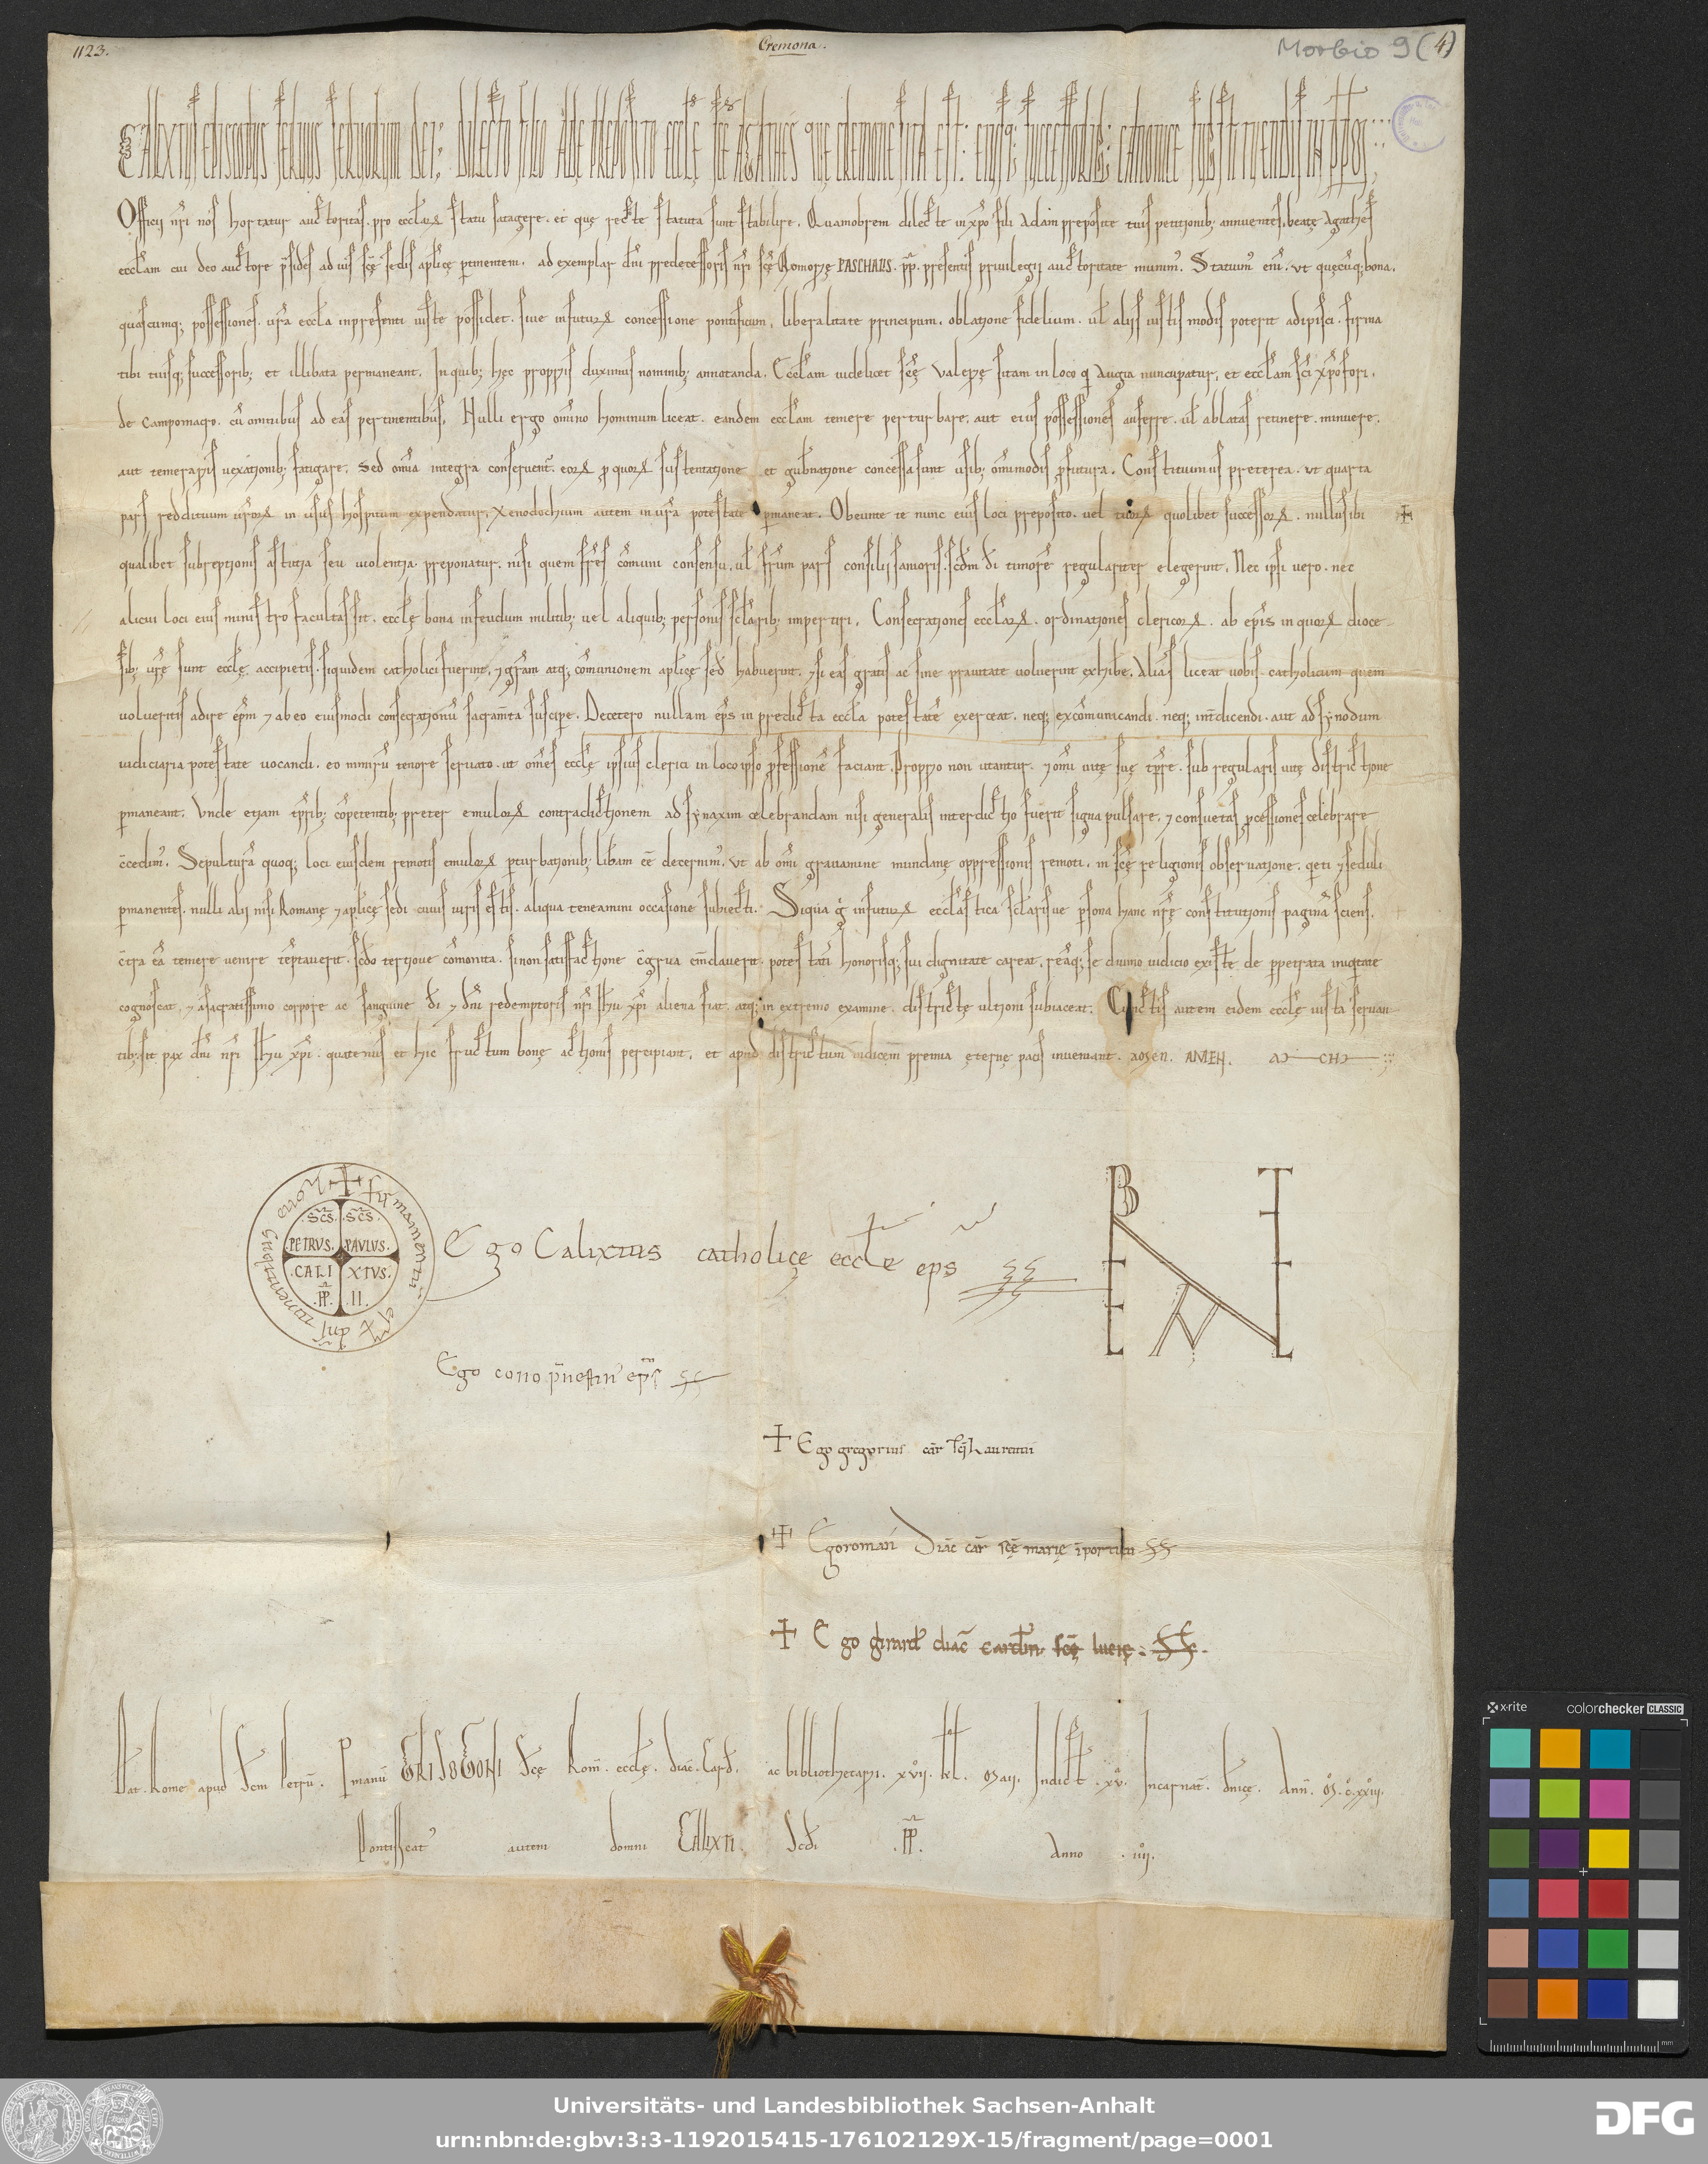 1123.
Cremona.
Morbio 9 (4)
CALIXTUS EPISCOPUS SERVUS SERVORUM DEI. DILECTO FILIO ADE PREPOSITO ECCLE SCE AGATHES QUE CREMONE SITA EST: EIUSQ; SUCCESSORIB; CANONICE SUBSTITUENDIS IN PPM
Officii nri nos hortatur auctoritas. pro ecclarꝝ statu satagere. et quę recte statuta sunt stabilire. Quamobrem dilecte in xpo fili Adam preposite tuis petitionib; annuentes. beatę Agathes
ecclam cui deo auctore psides ad ius scę sedis aplicę ptinentem. ad exemplar dni predecessoris nri scę Memorię PASCHALIS. pp. presentis privilegii auctoritate munim. Statuim eni. ut quęcuq; bona.
quascumq; possessiones. vra eccla inpresenti iuste possidet. sive infuturꝝ concessione pontificum. liberalitate principum. oblatione fidelium. ul aliis iustis modis poterit adipisci. firma
tibi tuisq; successorib; et illibata permaneant. In quib; hęc propriis duximus nominib; annotanda. Ecclam videlicet scę Valerię sitam in loco q Augia nuncupatur. et ecclam sci xpofori.
de campomagro. cu omnibus ad eas pertinentibus. Nulli ergo omino hominum liceat. eandem ecclam temere perturbare. aut eius possessiones auferre. ul ablatas retinere. minuere.
aut temerariis vexationib; fatigare. Sed omia integra conservent. eorꝝ p quorꝝ sustentatione et gubnatione concessa sunt usib; omimodis pfutura. Constituimus preterea. ut quarta
pars reddituum urorꝝ in usus hospitum expendatur. Xenodochium autem in vra potestate pmaneat. Obeunte te nunc eius loci preposito. vel tuorꝝ quolibet successorꝝ. nullus ibi
qualibet subreptionis astutia seu violentia preponatur. nisi quem fres comuni consensu. ul frum pars consilii sanioris. scdm di timore regulariter elegerint. Nec ipsi vero. nec
alicui loci eius ministro facultas sit. ecclę bona infeudum militib; vel aliquib; personis sclarib; impertiri. Consecrationes ecclarꝝ. ordinationes clericorꝝ. ab epis in quorꝝ dioce-
sib; vrę sunt ecclę accipietis. siquidem catholici fuerint. ⁊ gram atq; comunionem aplicę sed habuerint. ⁊ si eas gratis ac sine pravitate voluerint exhibe. Alias liceat vobis catholicum quem
volueritis adire epm ⁊ ab eo eiusmodi consecrationu sacramta suscipe. Decetero nullam eps in predicta eccla potestate exerceat. neq; excomunicandi. neq; intdicendi. aut ad synodum
iudiciaria potestate vocandi. eo nimiru tenore servato. ut omes ecclę ipsius clerici in loco ipso pfessione faciant. Proprio non utantur. ⁊ omi vitę suę tpre. sub regularis vitę districtione
pmaneant. Unde etiam tprib; copetentib; preter emulorꝝ contradictionem ad synaxim celebrandam nisi generalis interdictio fuerit signa pulsare. ⁊ consuetas pcessiones celebrare
ccedim. Sepultura quoq; loci eiusdem remotis emulorꝝ pturbationib; libam ee decernim. Ut ab omi gravamine mundanę oppressionis remoti. in scę religionis observatione. qeti ⁊ seduli
pmanentes. nulli alii nisi Romanę ⁊ aplicę sedi cuius iuris estis. aliqua teneamini occasione subiecti. Siqua g infuturꝝ ecclastica sclarisve psona hanc nrę constitutionis pagina sciens.
ctra ea temere venire teptaverit. scdo tertiove comonita. si non satisfactione cgrua emdaverit. potestati honorisq; sui dignitate careat. reaq; se divino iudicio existe de ppetrata iniqitate
cognoscat. ⁊ a sacratissimo corpore ac sanguine di ⁊ dni redemptoris nri ihu xpi aliena fiat. atq; in extremo examine. districtę ultioni subiaceat. Cunctis autem eidem ecclę iusta servan
tib; sit pax dni nri ihu xpi. quatenus et hic fructum bonę actionis percipiant. et apud districtum iudicem premia ęternę pacis inveniant. amen. AMEN.
✝ firmamentum est dns timentibus eum
SCS. SCS.
PETRVS. PAVLVS.
CALI XTVS.
PP. II.
Ego Calixtus catholicę eccle eps ss
Ego cono pnestin eps ss
✝ Ego gregorius car sci Laurentii
✝ Ego roman Diac car scę marię i porticu ss
✝ Ego girard diac cardin scę lucię ss.
Dat. Rome apud Scm Petru. P manu GRISOGONI Scę Rom. ecclę. diac. Card. ac bibliothecarii. xvii. kl. Maii. Indict. xv. Incarnat. dnicę. Ann. M. c. xxiii.
Pontificat autem domni CALIXTI. Scdi .PP. Anno . iiii.
x-rite
colorchecker CLASSIC
mm
Universitäts- und Landesbibliothek Sachsen-Anhalt
urn:nbn:de:gbv:3:3-1192015415-176102129X-15/fragment/page=0001
DFG